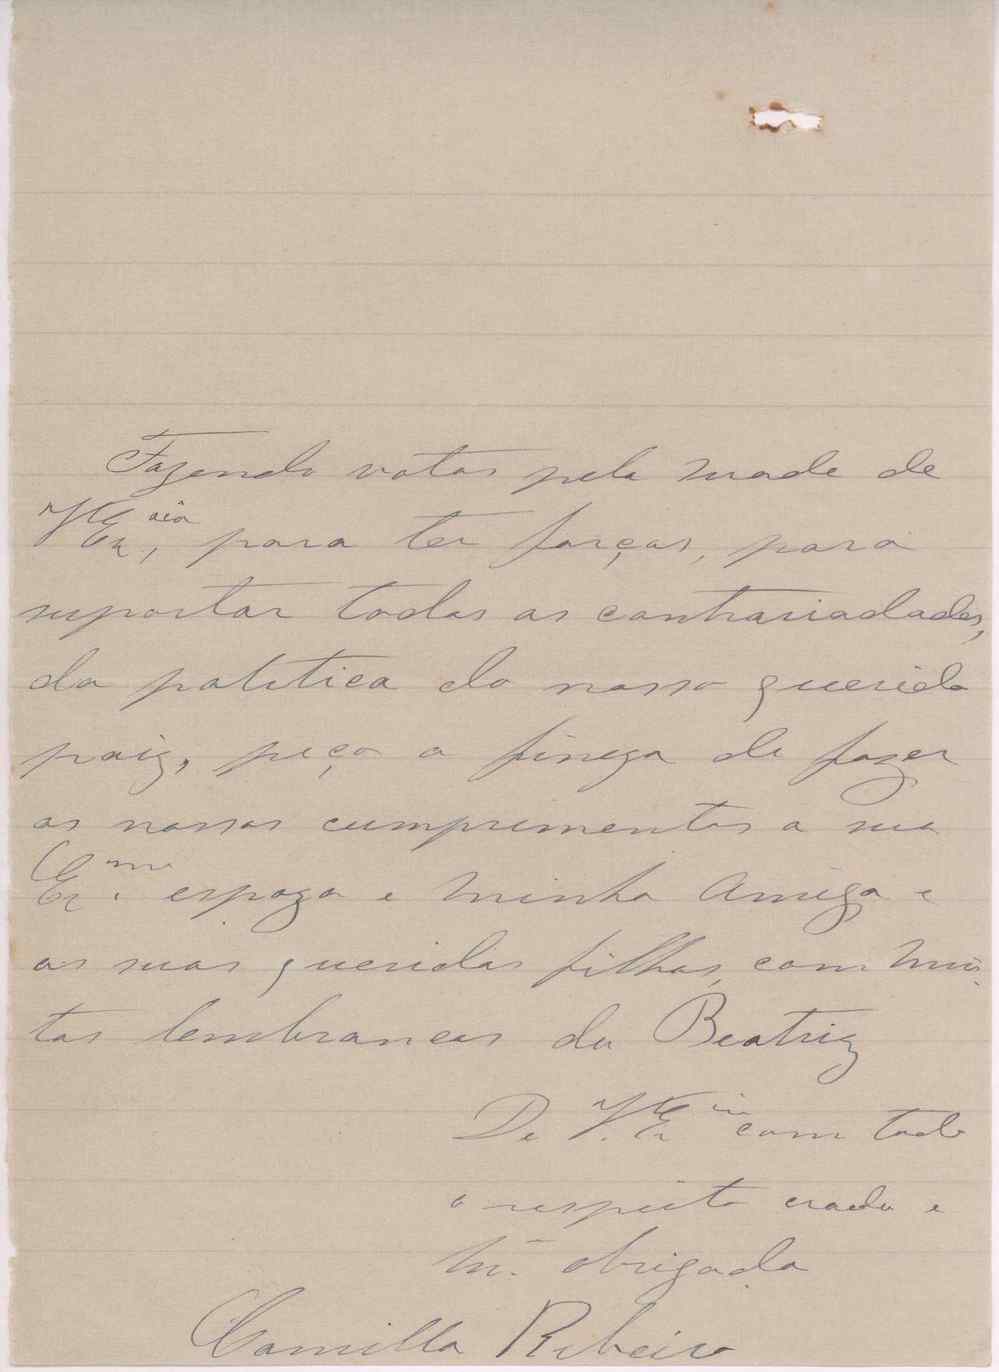 Fazendo votos pela suade de
V Ex.cia, para ter forças, para
suportar todas as contrariadades,
da politica do nosso querido
paiz, peço a fineza de fazer
os nossos cumprimentos a sua
Ex.ma espoza e minha Amiga e
as suas queridas filhas, com mui-
tas lembrancas da Beatriz
De V. Ex.cia com todo
o respeito crada e
Mt. obrigada
Camilla Ribeiro